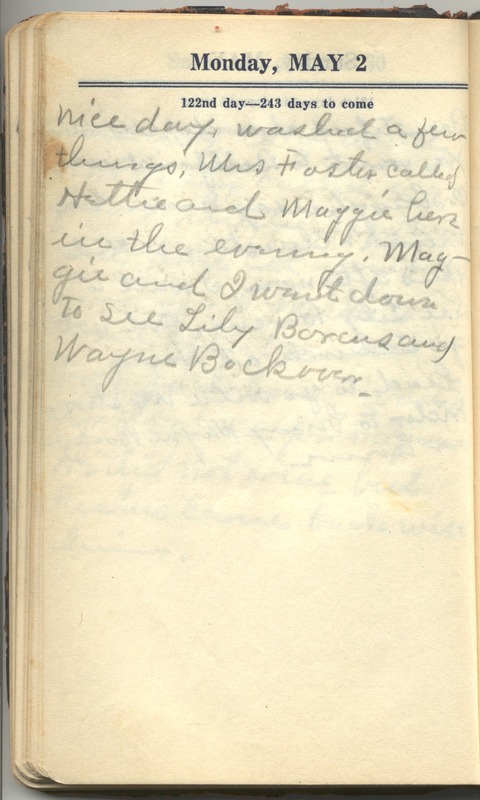 Monday, MAY 2
122nd day—243 days to come
nice day, washed a few
things, Mrs Foster called
Hattie and Maggie here
in the evening. Mag-
gie and I went down
to see Lily Borcus and
Wayne Bockover.